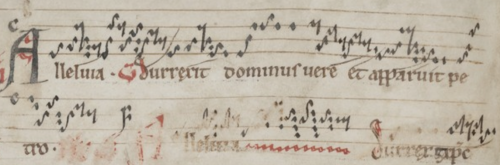 Alleluia. Surrexit dominus vere et apparuit pe
tro. lleluia Surrex